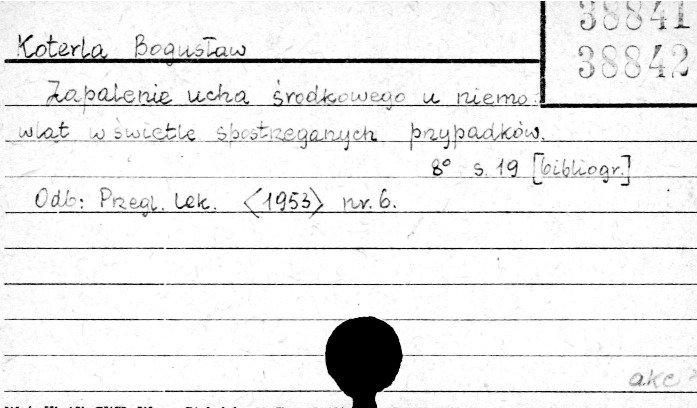 38841
38842
Koterla Bogusław
Zapalenie ucha środkowego u niemo:
wląt w świetle spostrzeganych przypadków.
8° s. 19 [bibliogr.]
Odb: Przegl. lek. <1953> nr. 6.
akc